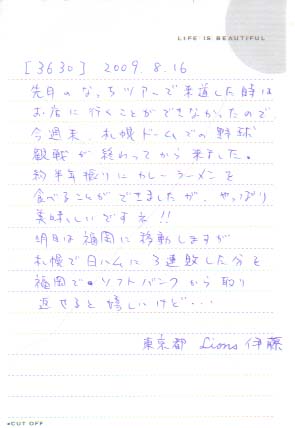 LIFE IS BEAUTIFUL
[3630] 2009.8.16
先月のなっちツアーで来道した時は
お店に行くことができなかったので
今週末、札幌ドームでの野球
観戦が終わってから来ました。
約半年振りにカレーラーメンを
食べることができましたが、やっぱり
美味しいですネ!!
明日は福岡に移動しますが
札幌で日ハムに3連敗した分を
福岡でソフトバンクから取り
返せると嬉しいけど・・・
東京都 Lions 伊藤
CUT OFF